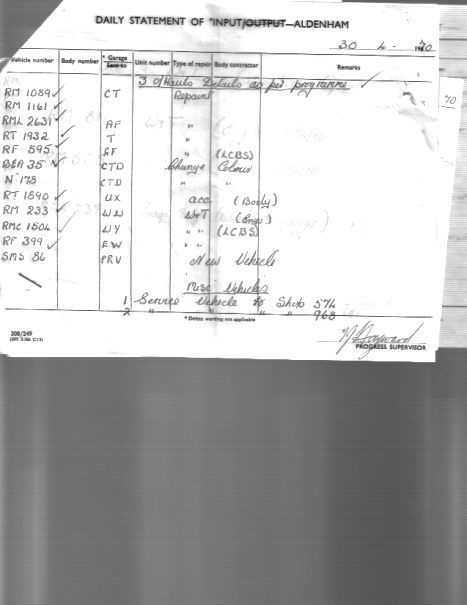 DAILY STATEMENT OF *INPUT/OUTPUT—ALDENHAM
30 4 - 1970
Vehicle number Body number * Garage Sent to Unit number Type of repair Body contractor Remarks
RM 3 O/Hauls Details as per programme. ✓
RM 1089 ✓ CT Repaint
RM 1161 ✓
RML 2631 ✓ AF "
RT 1932 ✓ T "
RF 595 ✓ GF " (LCBS)
BEA 35 ✓ CTD Change Colour
N 178 CTD " "
RT 1840 ✓ UX acc (Body)
RM 233 ✓ WW W+T (Engs)
RMC 1504 ✓ WY " (LCBS)
RF 399 ✓ EW " "
SMS 86 PRV New Vehicle
Misc Vehicles
1 Service Vehicle to Shops 574
2 " " " " 968
* Delete wording not applicable
308/249
PROGRESS SUPERVISOR
70